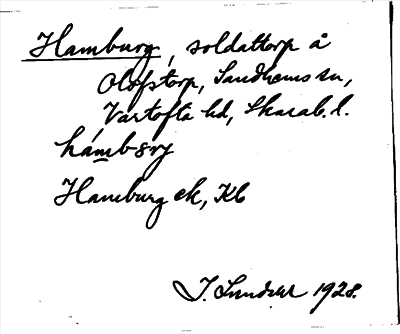 Hamburg, soldattorp å
Olofstorp, Sandhems sn,
Vartofta hd, Skarab. l.
Hamburg ek, Kb
J. 1928.